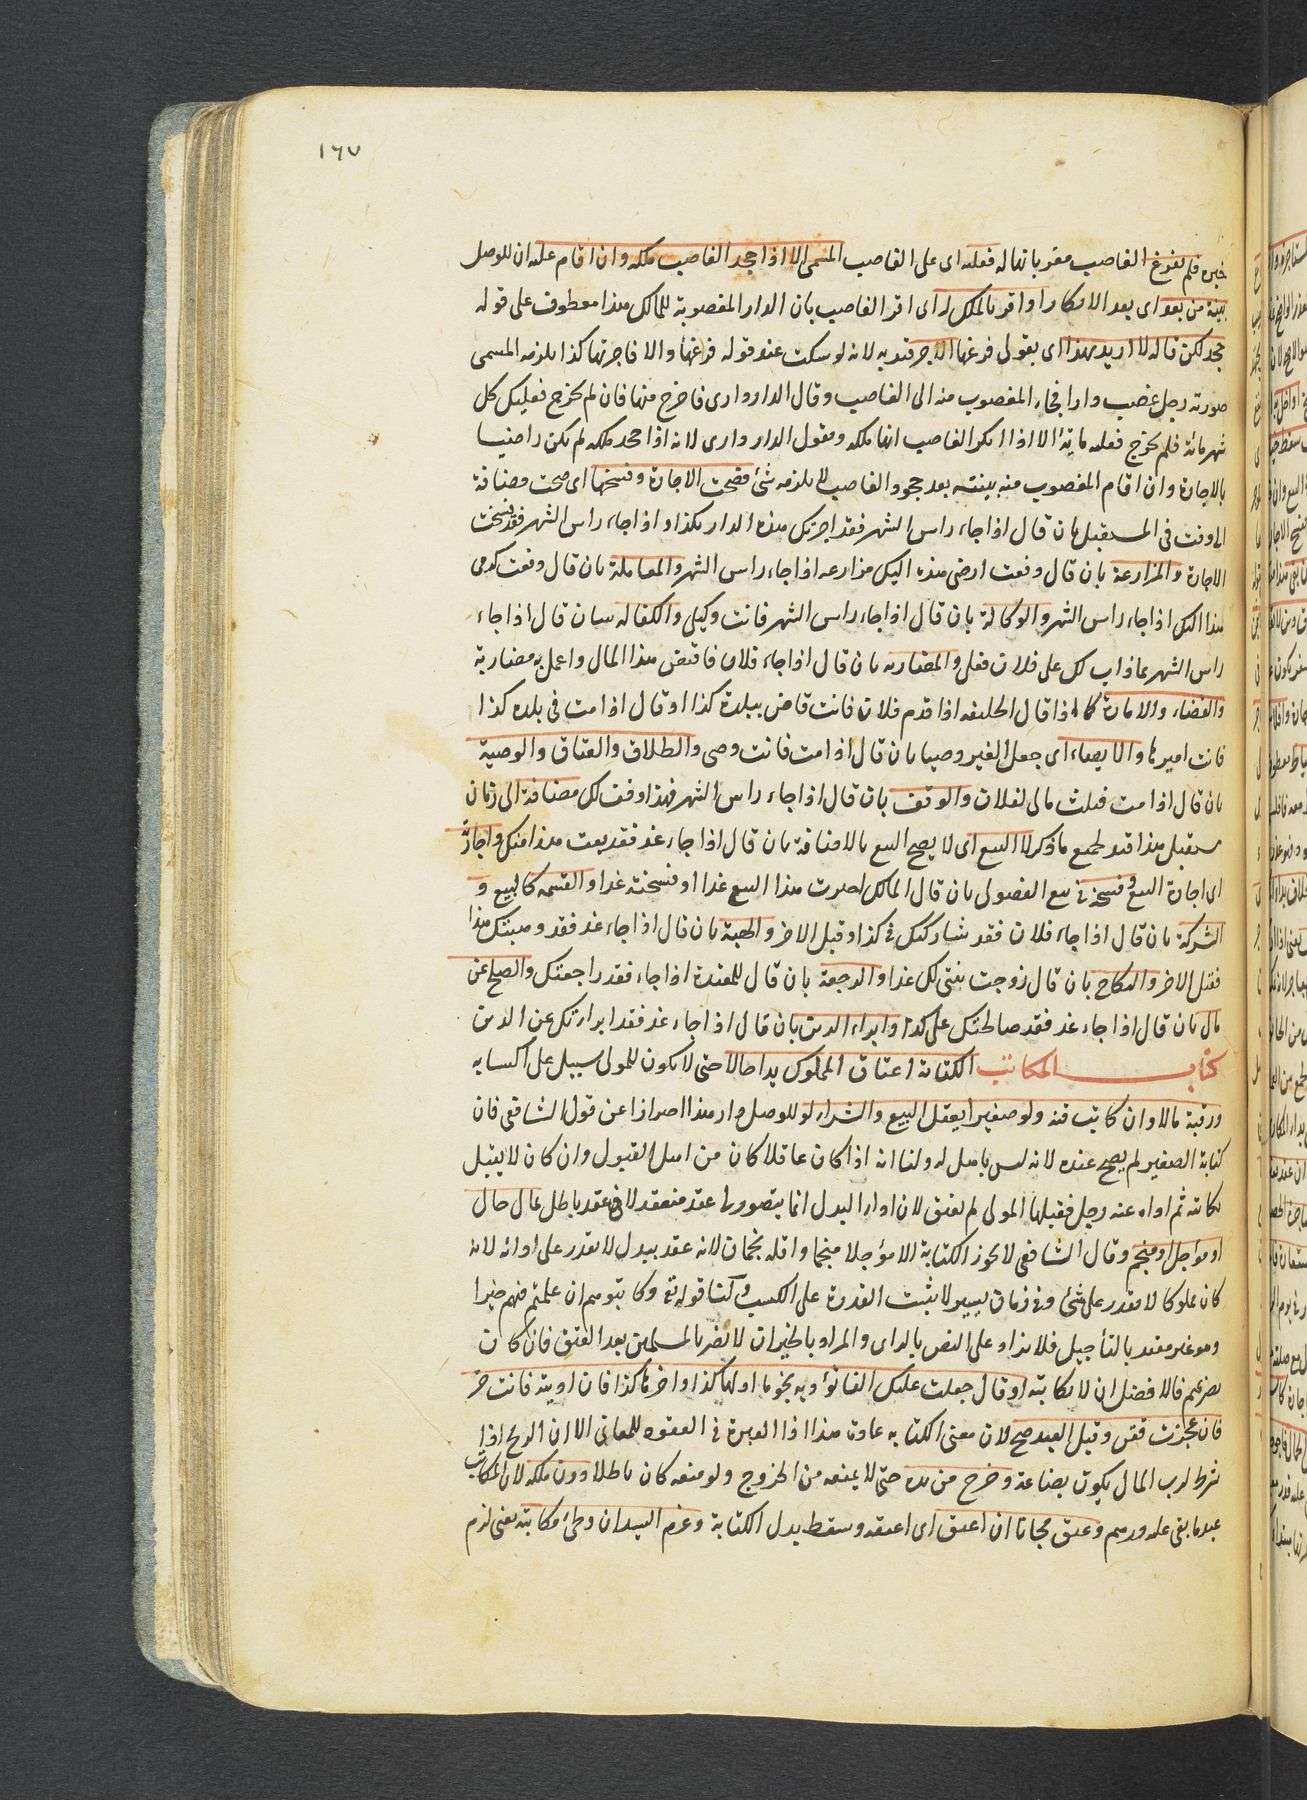 ١٦٧
فلم يفرغ الغاصب مقر بانها له فعليه اى على الغاصب المسمى الا اذا جحد الغاصب ملكه وان اقام عليه ان للوصل
بينة من بعد اى بعد الانكار او اقر بالملك له اى اقر الغاصب بان الدار المغصوبة للمالك هذا معطوف على قوله
جحد لكن قال لا اريد بهذا اى بقول فرغها الاجر قيد به لانه لو سكت عند قوله فرغها والا فاجرتها كذا يلزمه المسمى
صورته رجل غصب دارا فجاء المغصوب منه الى الغاصب وقال الدار دارى فاخرج منها فان لم تخرج فعليك كل
شهر مائة فلم يخرج فعليه مائة الا اذا انكر الغاصب انها ملكه ويقول الدار دارى لانه اذا جحد ملكه لم يكن راضيا
بالاجارة وان اقام المغصوب منه بينته بعد جحود الغاصب لا يلزمه شئ وصحت الاجارة وفسخها اى صحت مضافة
الى وقت فى المستقبل بان قال اذا جاء راس الشهر فقد اجرتك هذه الدار بكذا واذا جاء راس الشهر فقد فسخت
الاجارة والمزارعة بان قال دفعت ارضى هذه اليك مزارعة اذا جاء راس الشهر والمعاملة بان قال دفعت كرمى
هذا اليك اذا جاء راس الشهر والوكالة بان قال اذا جاء راس الشهر فانت وكيلى والكفالة بان قال اذا جاء
راس الشهر بما ذاب لك على فلان فعلى والمضاربة بان قال اذا جاء فلان فاقبض هذا المال واعمل به مضاربة
والقضاء والامارة كما اذا قال الخليفة اذا قدم فلان فانت قاض ببلدة كذا او قال اذا مت فى بلده كذا
فانت اميرها والايصاء اى جعل الغير وصيا بان قال اذا مت فانت وصى والطلاق والعتاق والوصية
بان قال اذا مت فثلث مالى لفلان والوقف بان قال اذا جاء راس الشهر فهذا وقف لك مضافة الى زمان
مستقبل هذا قيد لجميع ما ذكر لا البيع اى لا يصح البيع بالاضافة بان قال اذا جاء غد فقد بعت هذا منك واجازته
اى اجازة البيع وفسخه فى بيع الفضولى بان قال المالك اجزت هذا البيع غدا او فسخته غدا والقسمة كالبيع و
الشركة بان قال اذا جاء فلان فقد شاركتك فى كذا وقبل الاخر والهبة بان قال اذا جاء غد فقد وهبتك هذا
فقبل الاخر والنكاح بان قال زوجت بنتى لك غدا والرجعة بان قال للمعتدة اذا جاء فقد راجعتك والصلح عن
مال بان قال اذا جاء غد فقد صالحتك على كذا وابراء الدين بان قال اذا جاء غد فقد ابراتك عن الدين
كتاب المكاتب الكتابة اعتاق المملوك يدا حالا حتى لا يكون للمولى سبيل على اكسابه
ورقبة مالا وان كاتب قنه ولو صغيرا يعقل البيع والشراء لو للوصل هذا احترازا عن قول الشافعى فان
كتابة الصغير لم يصح عنده لانه ليس باهل له ولنا انه اذا كان عاقلا كان من اهل القبول وان كان لا يعقل
كتابته ثم اداه عنه رجل فقبلها المولى لم يعتق لان اداء البدل انما يتصور فى عقد منعقد لا فى عقد باطل بمال حال
او مؤجل او منجم وقال الشافعى لا يجوز الكتابة الا مؤجلا منجما واقله نجمان لانه عقد ببدل لا يقدر على ادائه لانه
كان مملوكا لا يقدر على شئ وفى زمان يسير لا يثبت القدرة على الكسب ولنا قوله تع وكاتبوهم ان علمتم فيهم خيرا
وهو غير مقيد بالتأجيل فلا يزاد على النص بالراى والمراد بالخير ان لا يضر بالمسلمين بعد العتق فان كان
يضرهم فالافضل ان لا يكاتبه او قال جعلت عليك الفا تؤديه نجوما اولها كذا واخرها كذا فان اديته فانت حر
فان عجزت فقن وقبل العبد صح لان معنى الكتابة عادة هذا اذا العبرة فى العقود للمعانى الا ان الربح اذا
شرط لرب المال يكون بضاعة وخرج من يده حتى لا يمنعه من الخروج ولو منعه كان باطلا دون ملكه لان المكاتب
عبد ما بقى عليه درهم وعتق مجانا ان اعتق اى اعتقه وسقط بدل الكتابة وغرم السيد ان وطئ مكاتبته يعنى لزم